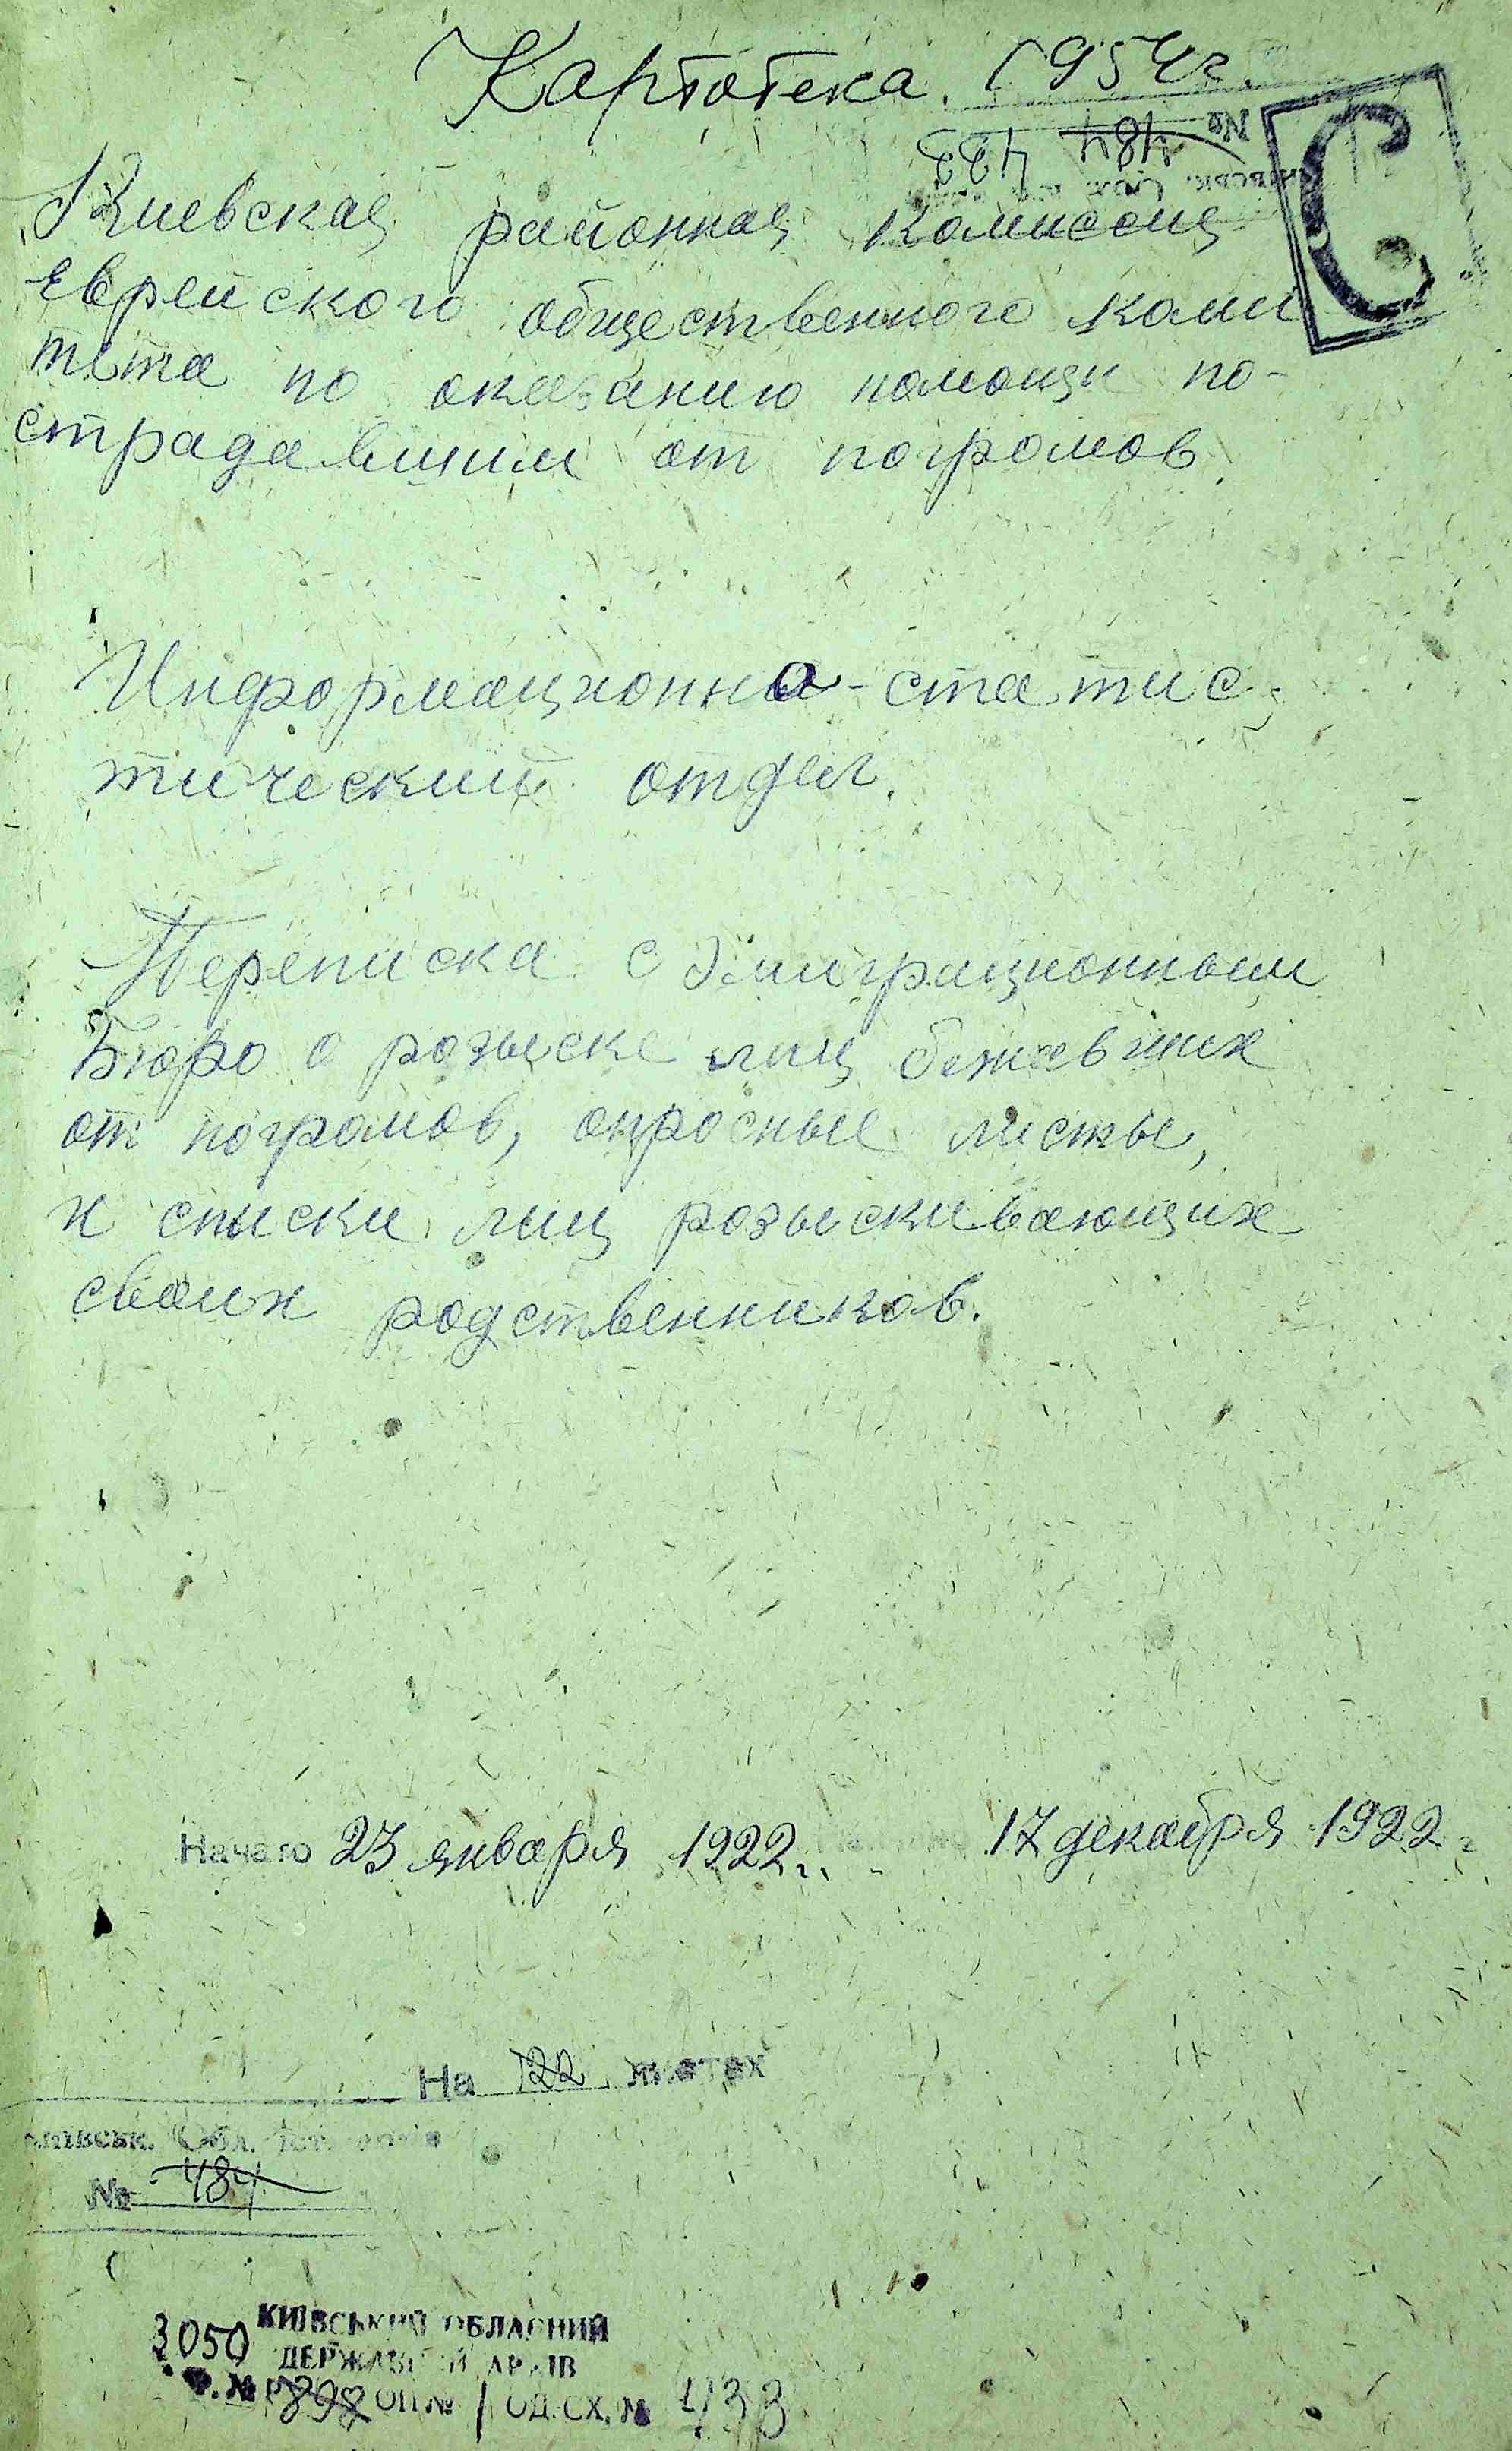 Картотека. 1954г.
№ 484 433
С
Киевская районная комиссия
Еврейского общественного коми
тета по оказанию помощи по-
страдавшим от погромов.
Информационно-статис
тический отдел.
Переписка с Эмиграционным
Бюро о розыске лиц бежавших
от погромов, опросные листы,
и списки лиц розыскивающих
своих родственников.
Начато 23 января 1922г. 17 декабря 1922г
На 122 листах
Обл. іст.
№ 484
КИЇВСЬКИЙ ОБЛАСНИЙ
3050 ДЕРЖАВНИЙ АРХІВ
Ф.№ ОП № 1 ОД.СХ. № 433